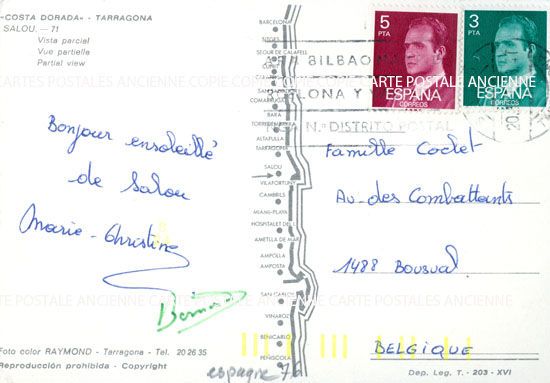 «COSTA DORADA» - TARRAGONA
SALOU. — 71
Vista parcial
Vue partielle
Partial view
BARCELONA
SITGES
SEGUR DE CALAFELL
COMARRUGA
BARA
TORREDEMBARRA
ALTAFULLA
TARRAGONA
SALOU
VILAFORTUNY
CAMBRILS
MIAMI-PLAYA
HOSPITALET DEL
AMETLLA DE MAR
AMPOLLA
AMPOSTA
SAN CARLOS
VINAROZ
BENICARLO
PEÑISCOLA
5
PTA
ESPAÑA
CORREOS
3
PTA
ESPAÑA
CORREOS
BILBAO
LONA Y V
N.º DISTRITO POSTAL
CARTES POSTALES ANCIENNE COPIE COPIE CARTE POSTALES ANCIENNE
Bonjour ensoleillé
de Salou
Marie-Christine
Famille Coclet
Av. des Combattants
1488 Bousval
BELGIQUE
CARTE POSTALES ANCIENNE CARTE POSTALES ANCIENNE
Foto color RAYMOND - Tarragona - Tel. 20 26 35
Reproducción prohibida - Copyright
espagne 76
Dep. Leg. T. - 203 - XVI